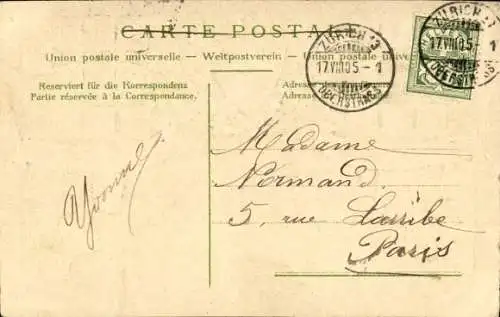 CARTE POSTALE
Union postale universelle – Weltpostverein – Union postale universelle
Reserviert für die Korrespondenz
Partie réservée à la Correspondance.
Adresse
ZÜRICH 13
17.VIII.05 – 1
OBERSTRASS
ZÜRICH 13
17.VIII.05 – 1
OBERSTRASS
Yvonne
Madame
Normand.
5, rue Larribe
Paris